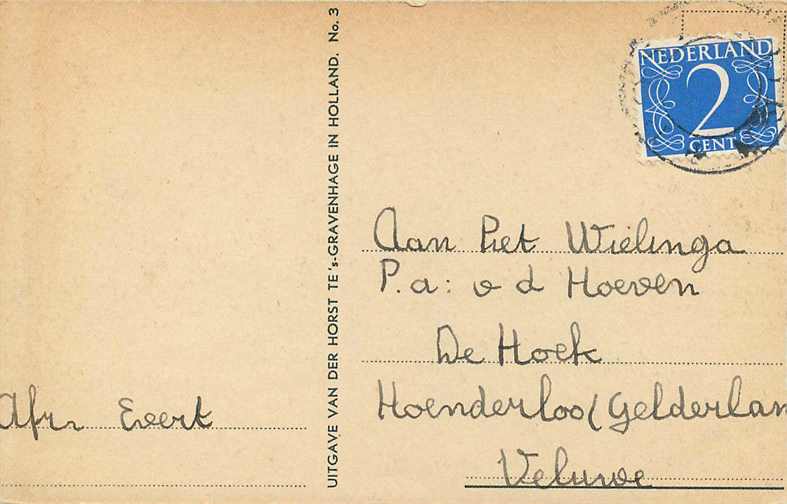 UITGAVE VAN DER HORST TE 's-GRAVENHAGE IN HOLLAND. No. 3
NEDERLAND
2
CENT
Aan Piet Wielinga
P.a: v d Hoeven
De Hoek
Hoenderloo (Gelderlan
Veluwe
Afz. Evert